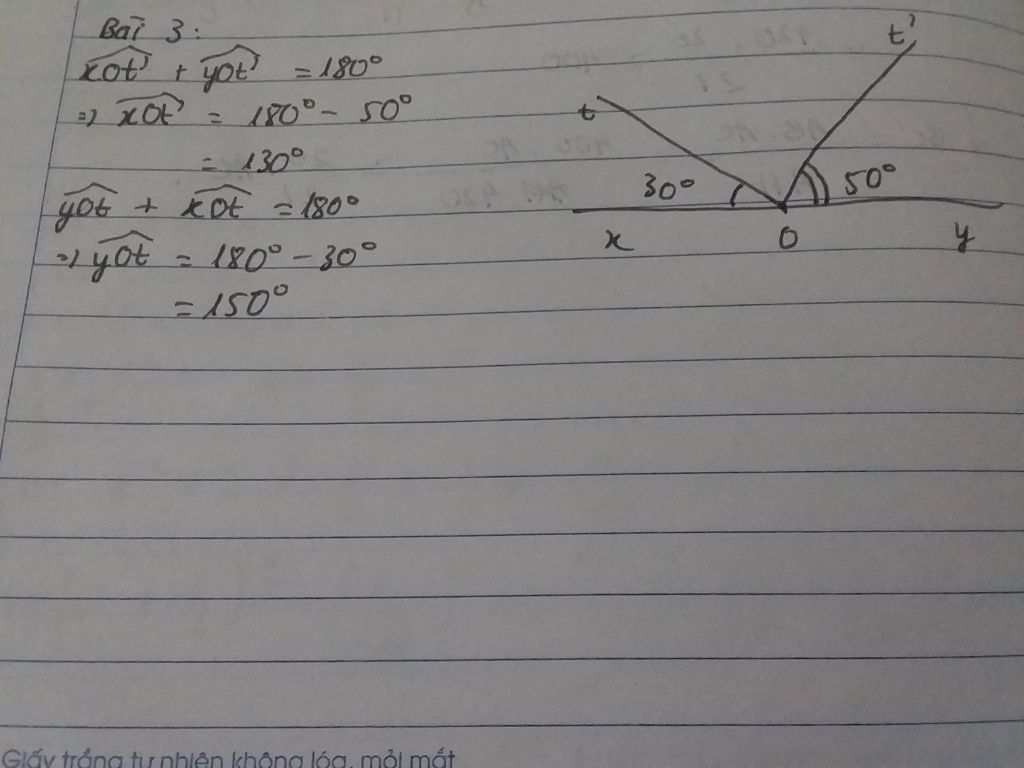 Bài 3:
xOt' + yOt' = 180°
=> xOt' = 180° - 50°
= 130°
yOt + xOt = 180°
=> yOt = 180° - 30°
= 150°
t'
t
30° 50°
x O y
Giấy trắng tự nhiên không lóa, mỏi mắt